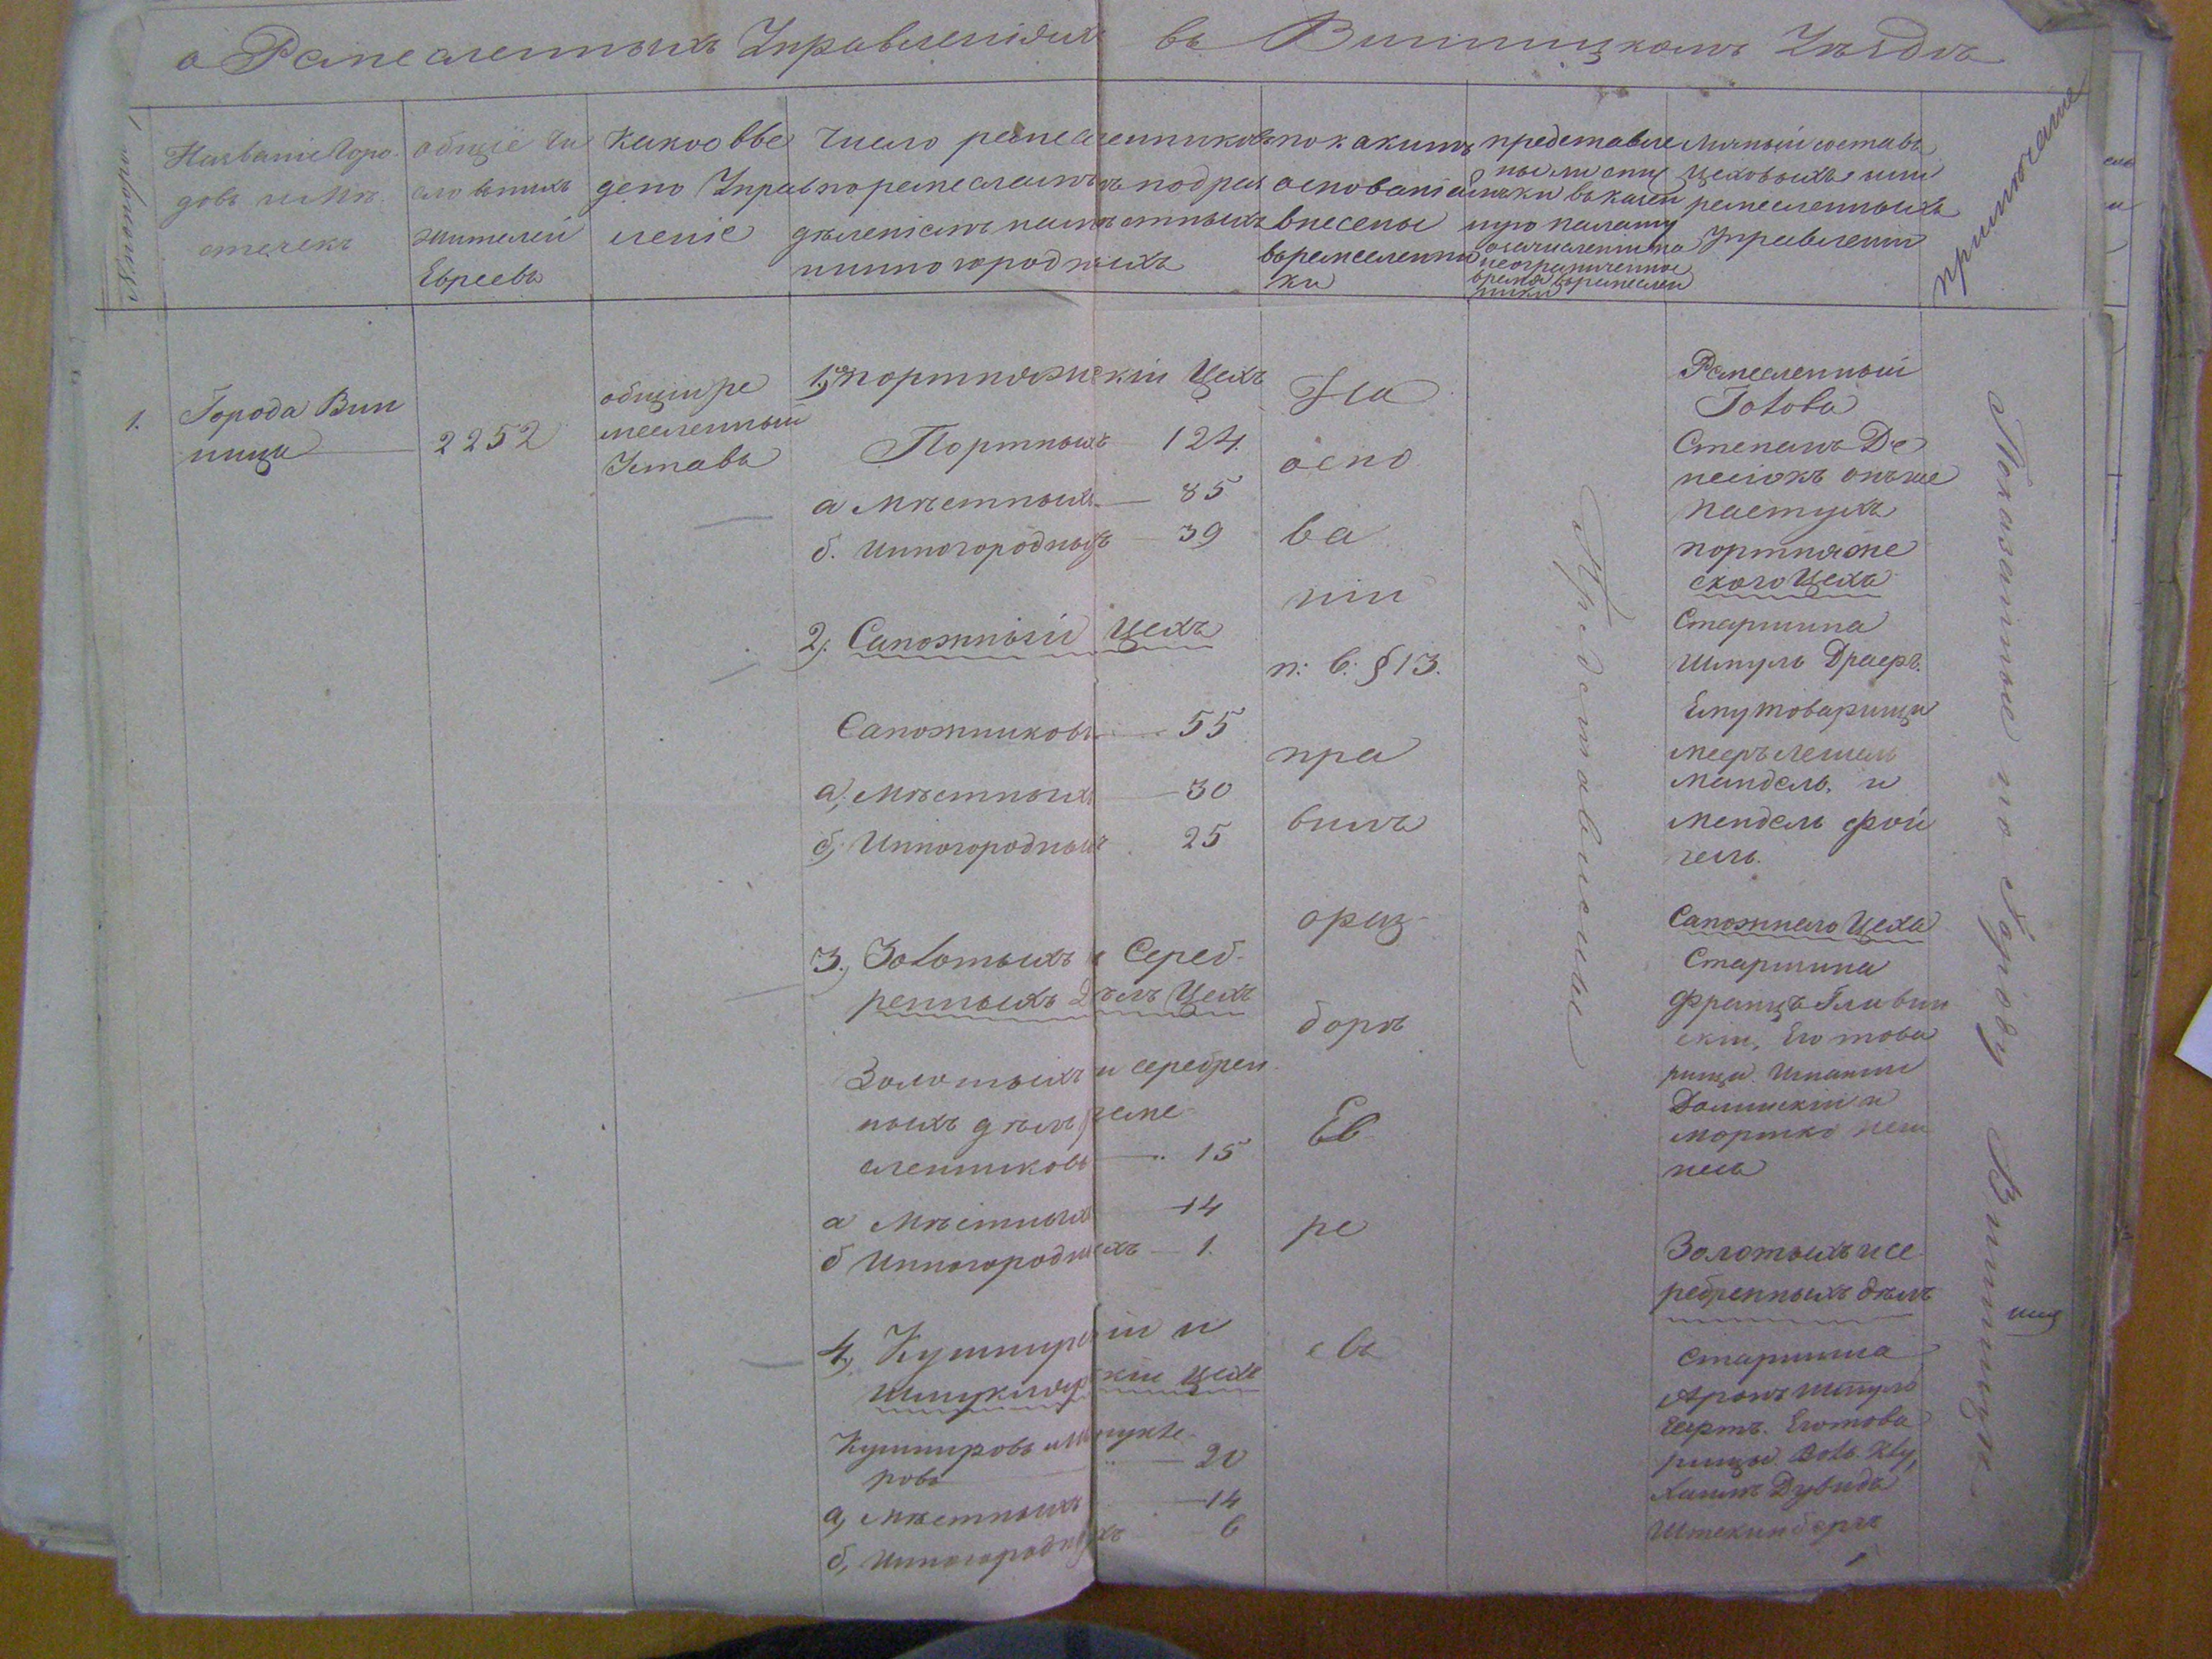 о Ремесленныхъ Управленіяхъ въ Винницкомъ Уѣздѣ
Названіе Горо-
довъ и Мѣ-
стечекъ
общее чи
сло въ нихъ
жителей
Евреевъ
Какое вве
дено Управ
леніе
Число ремесленниковъ
по ремесламъ съ подраз
дѣленіемъ на мѣстныхъ
и инногородныхъ
по какимъ
основаніямъ
внесены
въ ремесленни
ки
представле
ны ли спи
ски въ казен
ную палату
о зачисленіи на
неограниченное
время въ ремеслен
ники
Личный составъ
цеховыхъ или
ремесленныхъ
Управленій
примѣчаніе
1.
Города Вин
ница
2252
общій ре
месленный
Уставъ
1. портняжскій Цехъ
Портныхъ 124.
а Мѣстныхъ — 85
б. Инногородныхъ — 39
2). Сапожный Цехъ
Сапожниковъ — 55
а, Мѣстныхъ — 30
б, Инногородныхъ 25
3., Золотыхъ и Сереб-
ренныхъ Дѣлъ Цехъ
Золотыхъ и серебрен
ныхъ дѣлъ реме-
сленниковъ — 15
а Мѣстныхъ — 14
б Инногородныхъ — 1.
4, Кушнирскій и
Шмуклярскій цехъ
Кушнировъ и Шмукле-
ровъ — 20
а, Мѣстныхъ — 14
б, Инногородныхъ 6
На
осно
ва
ніи
п: в: § 13.
пра
вилъ
о раз-
борѣ
Ев
ре
евъ
Представлены
Ремесленный
Голова
Степанъ Де
онъ же
Пастухъ
портняже
скаго Цеха
Старшина
Шмуль Драеръ.
Ему товарищи
Мееръ Лешель
Мандель, и
Мендель Фой
гель.
Сапожнаго Цеха
Старшина
Францъ Гливин
скій, Его това
рищи
Долинскій и
Мортко
Золотыхъ и се
ребренныхъ дѣлъ
Старшина
Аронъ Шмуль
Его това
рищи
Хаимъ Дувидъ
Штекинбергъ
Показанные по Городу Винницѣ